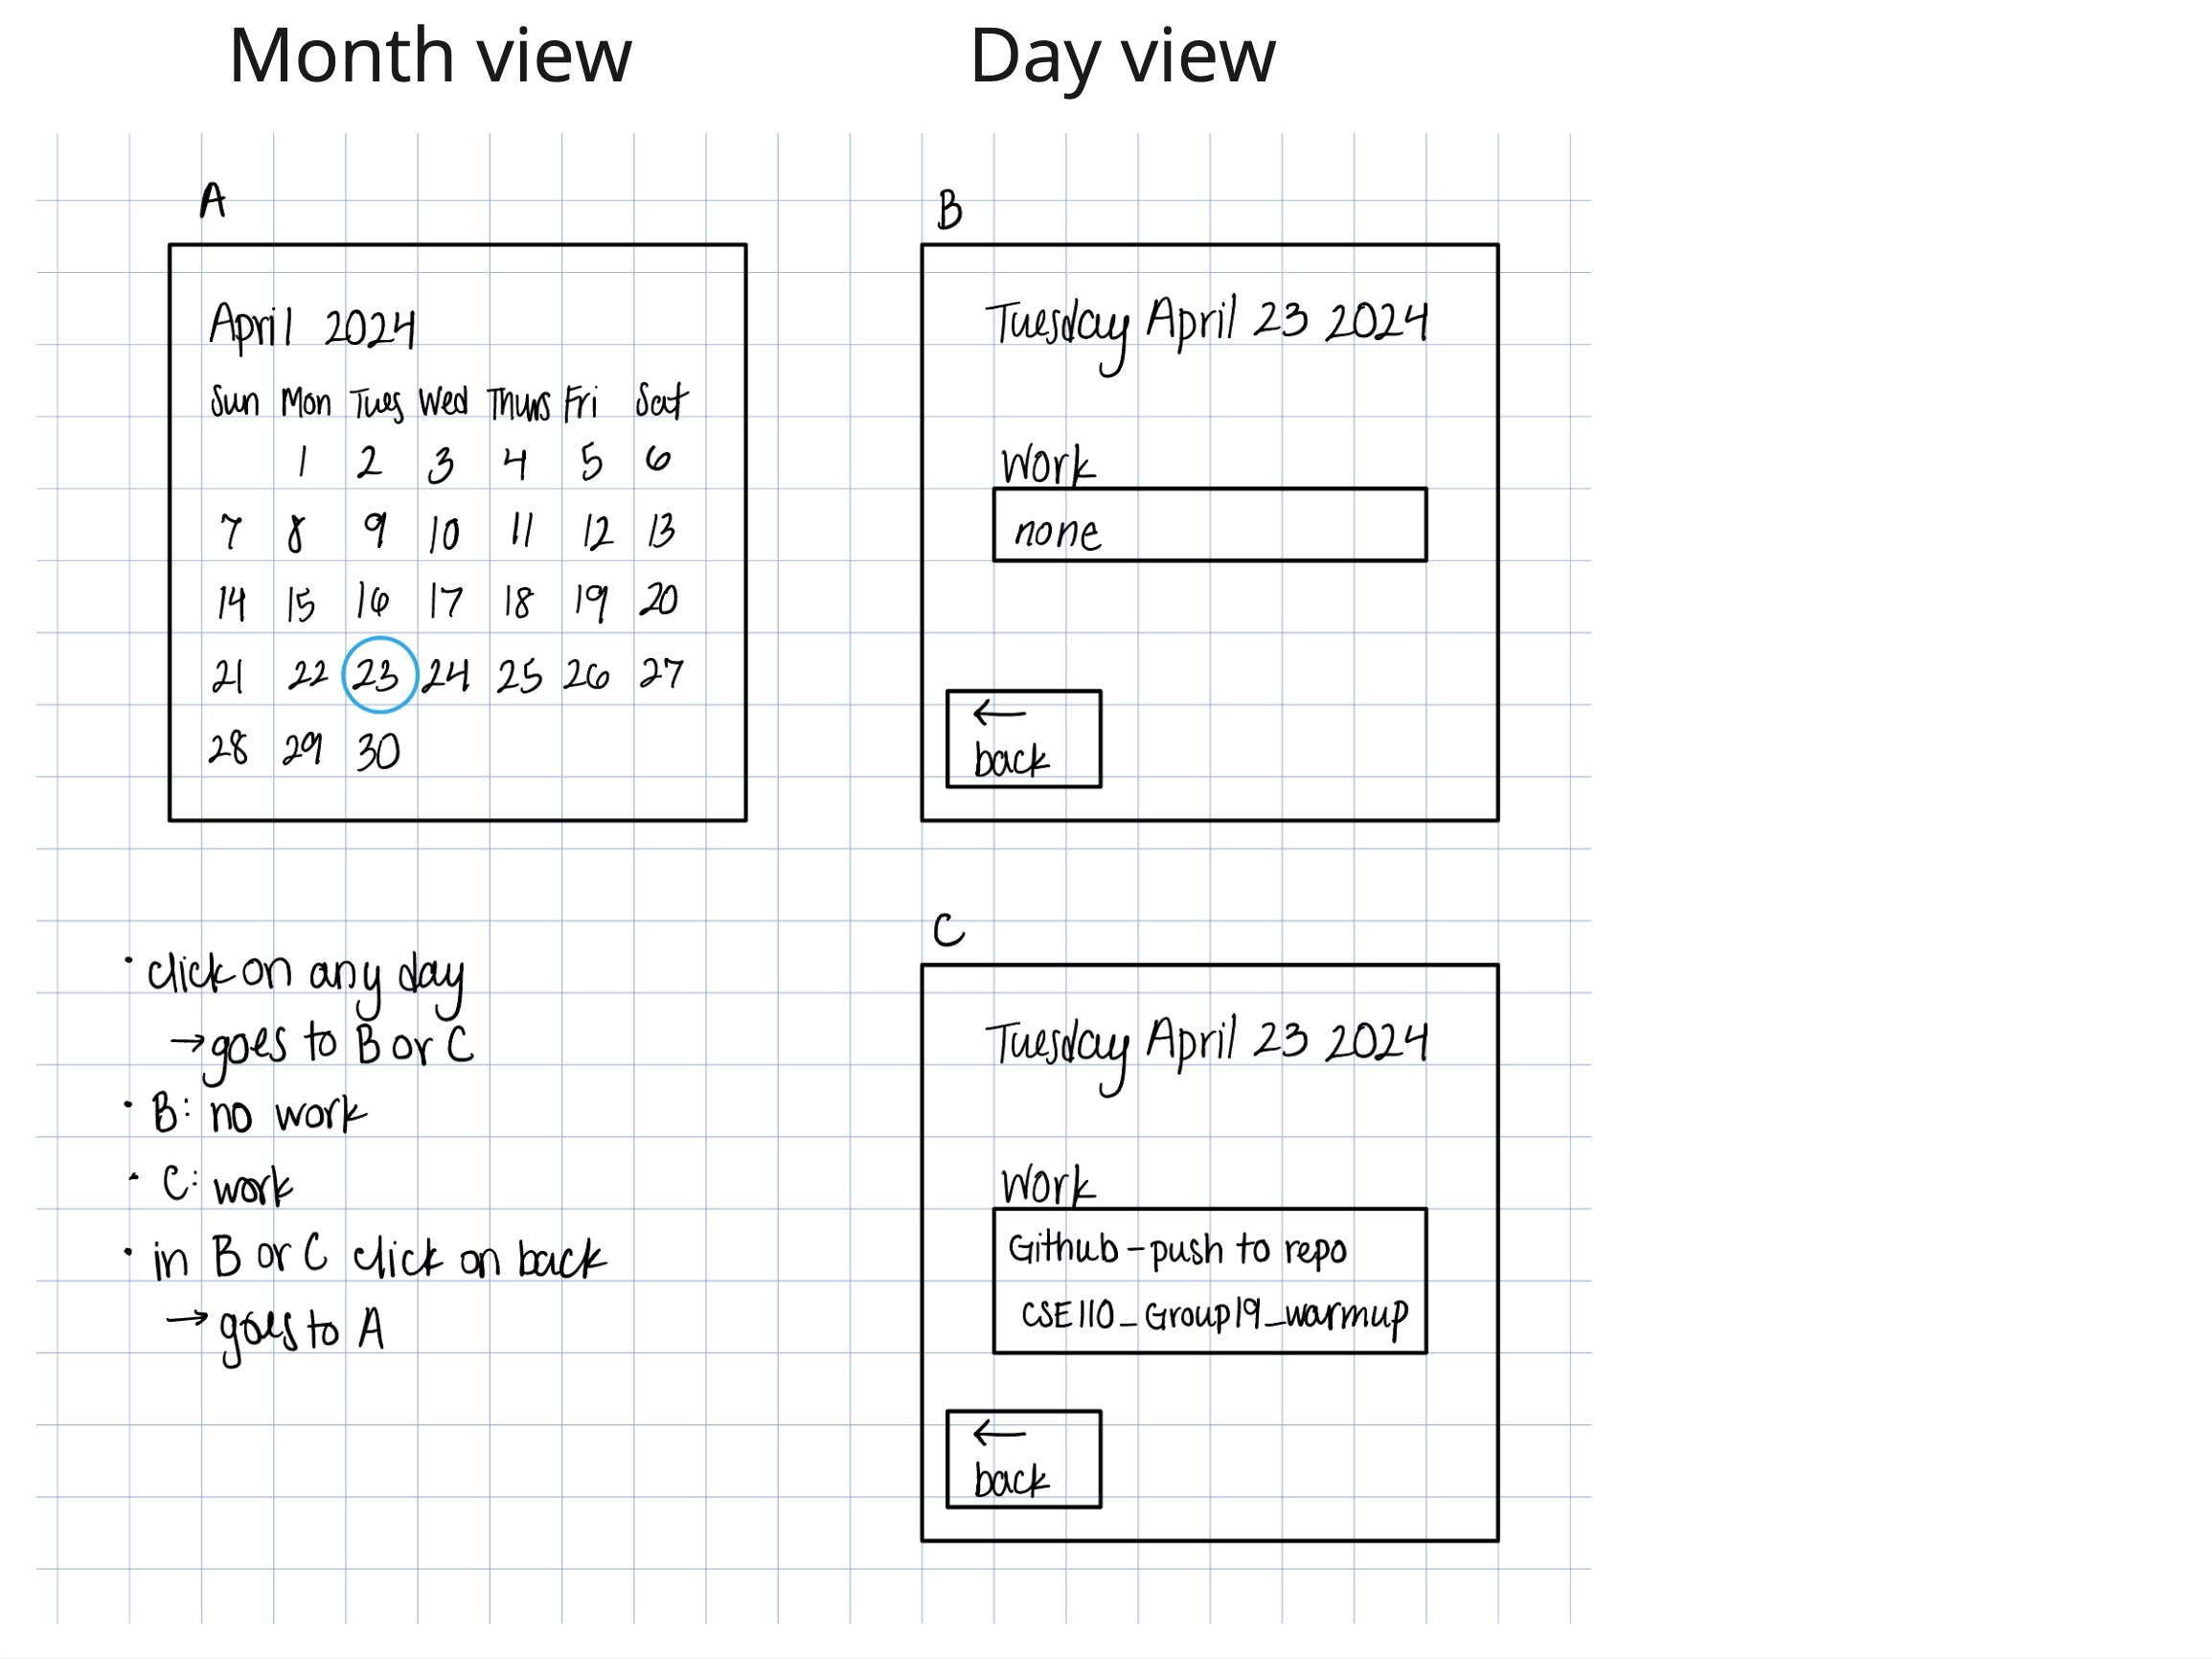 Month view
A
April 2024
Sun Mon Tues Wed Thurs Fri Sat
1 2 3 4 5 6
7 8 9 10 11 12 13
14 15 16 17 18 19 20
21 22 23 24 25 26 27
28 29 30
• click on any day
→ goes to B or C
• B: no work
• C: work
• in B or C click on back
→ goes to A
Day view
B
Tuesday April 23 2024
Work
none
←
back
C
Tuesday April 23 2024
Work
Github - push to repo
CSE110_Group19_warmup
←
back